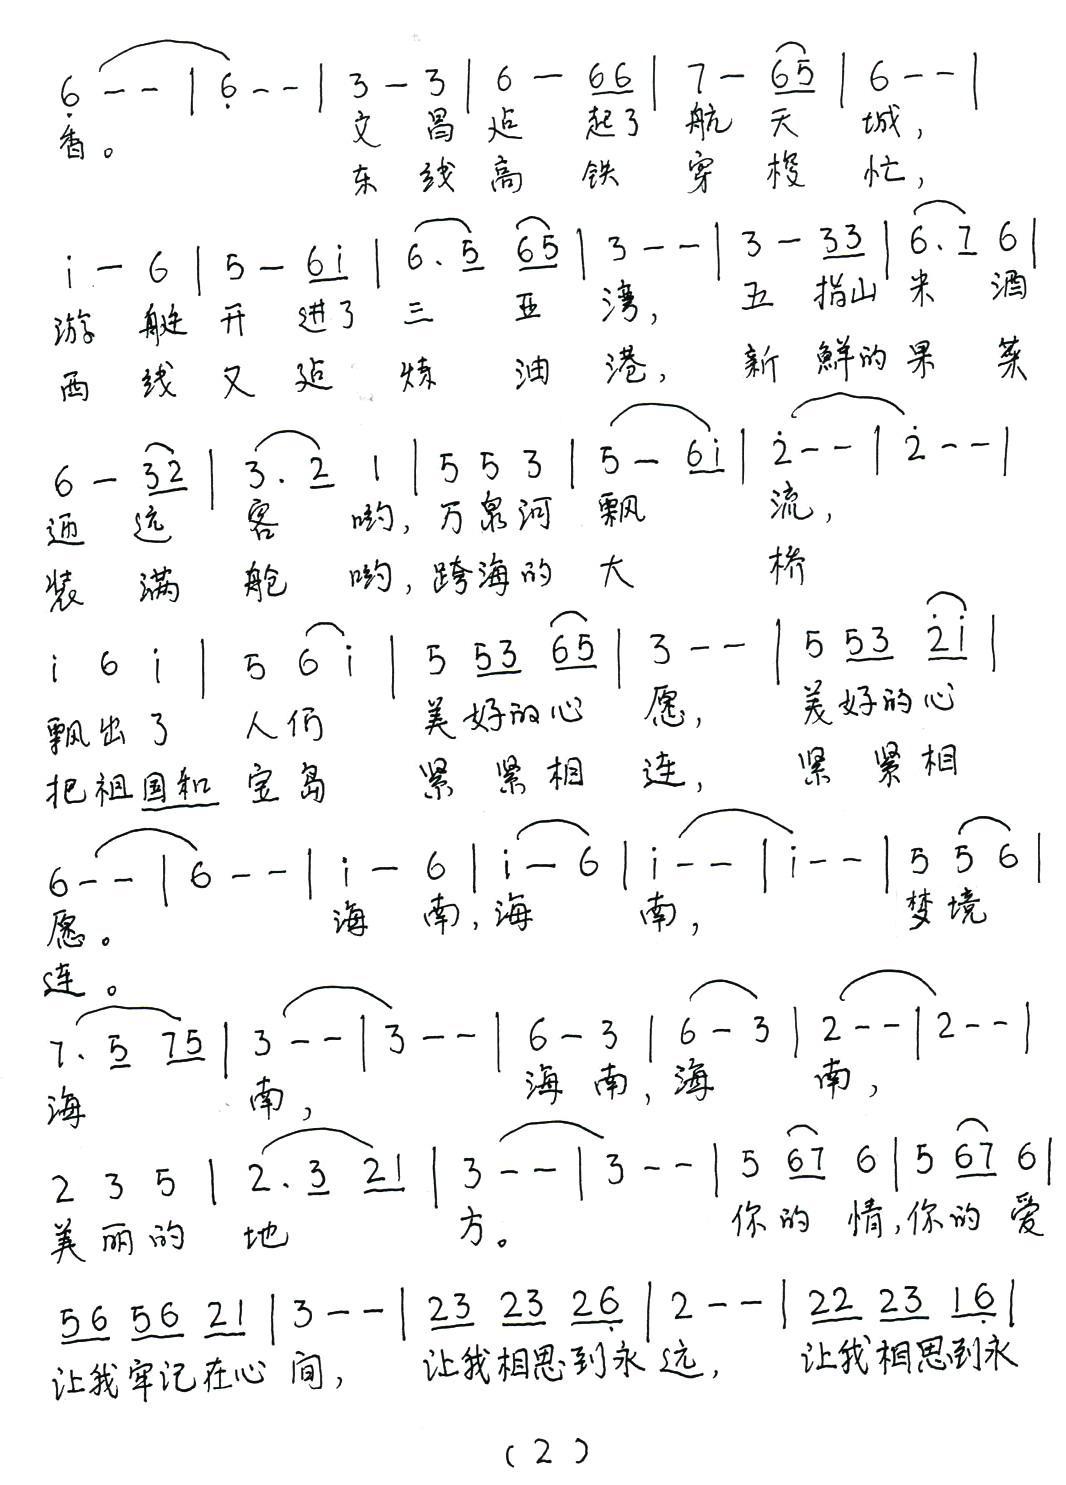 6̣ - - | 6̣ - - | 3 - 3 | 6 - 66 | 7 - 65 | 6 - - |
香。 文 昌 起了 航 天 城，
东 线 高 铁 穿 梭 忙，
i - 6 | 5 - 6i | 6. 5 65 | 3 - - | 3 - 33 | 6. 7 6 |
游 艇 开 进了 三 亚 湾， 五 指山 米 酒
西 线 又 炼 油 港， 新 鲜的 果 菜
6 - 32 | 3. 2 1 | 5 5 3 | 5 - 6i | 2̇ - - | 2̇ - - |
远 客 哟，万泉河 飘 流，
装 满 舱 哟，跨海的 大 桥
i 6 i | 5 6 i | 5 53 65 | 3 - - | 5 53 2̇i |
飘出了 人们 美好的心 愿， 美好的心
把祖国和 宝岛 紧 紧相 连， 紧 紧相
6 - - | 6 - - | i - 6 | i - 6 | i - - | i - - | 5 5 6 |
愿。 海 南，海 南， 梦境
连。
7. 5 75 | 3 - - | 3 - - | 6 - 3 | 6 - 3 | 2 - - | 2 - - |
海 南， 海 南，海 南，
2 3 5 | 2. 3 21 | 3 - - | 3 - - | 5 67 6 | 5 67 6 |
美丽的 地 方。 你的 情，你的 爱
56 56 21 | 3 - - | 23 23 26̣ | 2 - - | 22 23 16̣ |
让我牢记在心 间， 让我相思到永 远， 让我相思到永
(2)